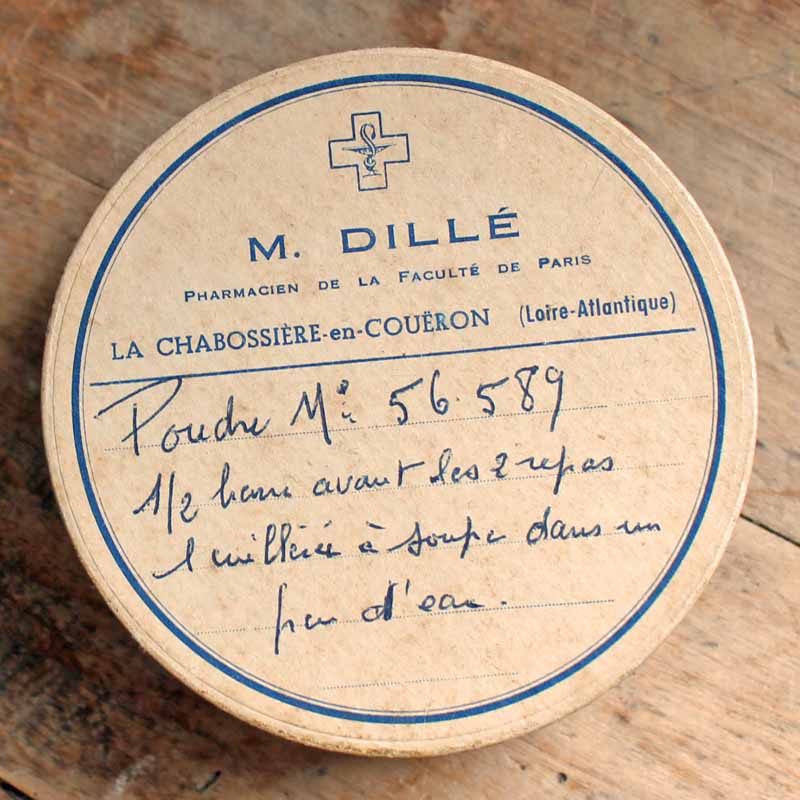 M. DILLÉ
PHARMACIEN DE LA FACULTÉ DE PARIS
LA CHABOSSIÈRE-en-COUËRON (Loire-Atlantique)
Poudre Nº 56.589
1/2 heure avant les 2 repas
1 cuillérée à soupe dans un
peu d'eau.